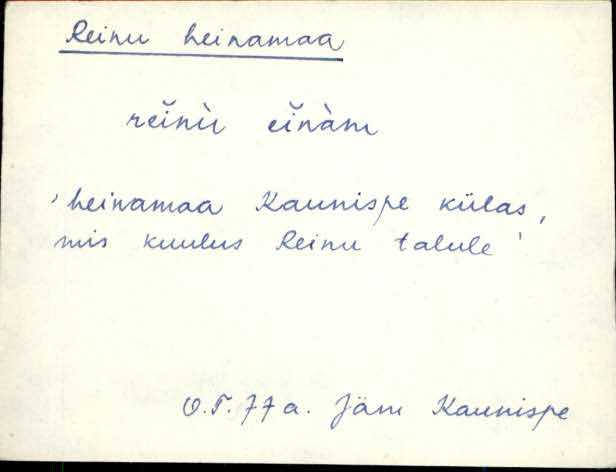 Reinu heinamaa
reĭnù eĭnàm
'heinamaa Kaunispe külas,
mis kuulus Reinu talule'
O.T. 77 a. Jäm Kaunispe